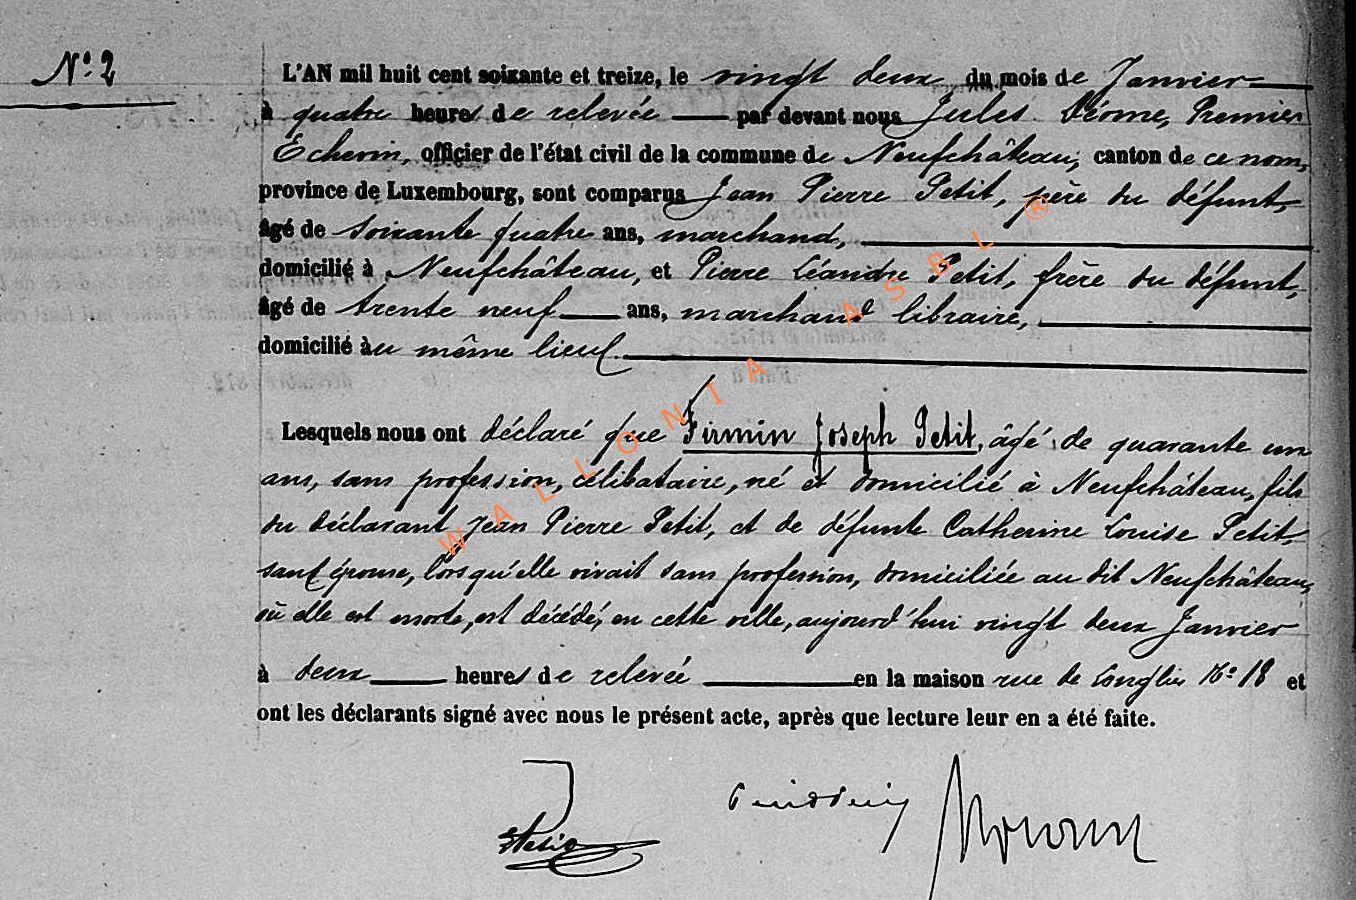 N° 2
L'AN mil huit cent soixante et treize, le vingt deux du mois de Janvier
à quatre heures de relevée par devant nous Jules Déome, Premier
Echevin, officier de l'état civil de la commune de Neufchâteau, canton de ce nom,
province de Luxembourg, sont comparus Jean Pierre Petit, père du défunt,
âgé de soixante quatre ans, marchand,
domicilié à Neufchâteau, et Pierre Léandre Petit, frère du défunt,
âgé de trente neuf ans, marchand libraire,
domicilié au même lieu
Lesquels nous ont déclaré que Firmin Joseph Petit, âgé de quarante un
ans, sans profession, célibataire, né et domicilié à Neufchâteau, fils
du déclarant Jean Pierre Petit, et de défunte Catherine Louise Petit,
sans épouse, lorsqu'elle vivait sans profession, domiciliée au dit Neufchâteau,
où elle est morte, est décédé, en cette ville, aujourd'hui vingt deux Janvier
à deux heures de relevée en la maison rue de Longlier N° 18 et
ont les déclarants signé avec nous le présent acte, après que lecture leur en a été faite.
WALLONIA ASBL ®